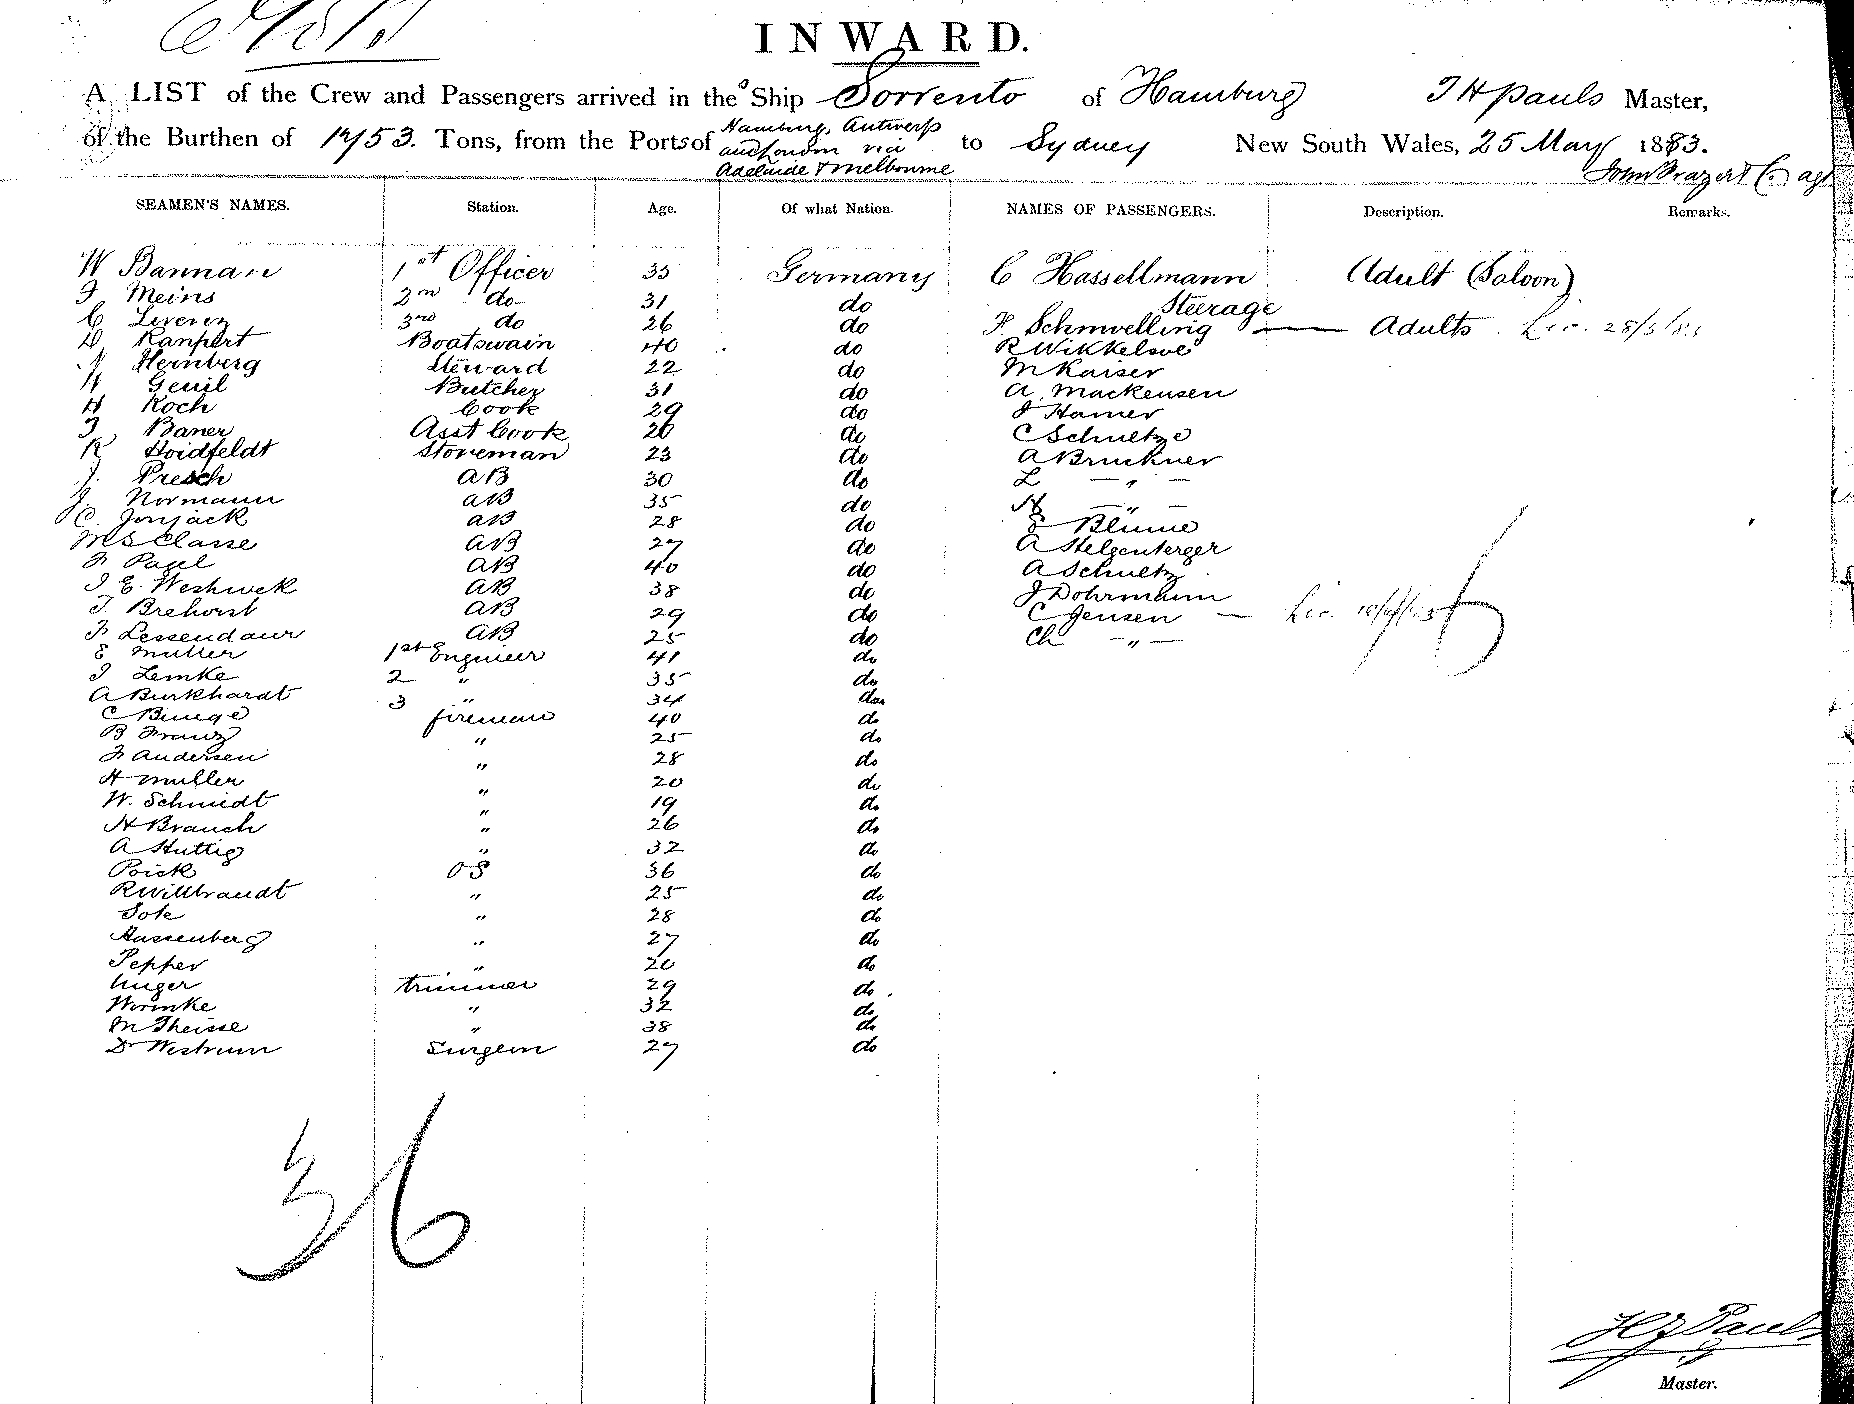 INWARD.
A LIST of the Crew and Passengers arrived in the S Ship Sorrento of Hamburg J H Pauls Master,
of the Burthen of 1453. Tons, from the Ports of Hamburg, Antwerp
and London via
Adelaide & Melbourne to Sydney New South Wales, 25 May 1883.
John Frazer & Co agt
SEAMEN'S NAMES. Station. Age. Of what Nation. NAMES OF PASSENGERS. Description. Remarks.
W Bannan 1st Officer 35 Germany C Hassellmann Adult (Saloon)
J Meins 2nd do 31 do Steerage
C Lverenz 3rd do 26 do F. Schmvelling — Adults
Ranpert Boatswain 40 do R Wikkelsoe
Hernberg Steward 22 do M Kaiser
H Genil Butcher 31 do A. Mackensen
H Koch Cook 29 do J Hamer
J Baner Asst Cook 26 do C Schultze
R Hoidfeldt Storeman 23 do A Bruckner
J. Presch AB 30 do L — " —
J. Normann AB 35 do — " —
C. Jonjack AB 28 do E Blume
M S Classe AB 27 do A Stelgenterger
F Pagel AB 40 do A Schultz
J E. Weshwek AB 38 do J Dohrmann
J. Brehorst AB 29 do C Jensen —
F Lessendaur AB 25 do Ch — " —
E Muller 1st Engineer 41 do
J Lemke 2 " 35 do
A Burkhardt 3 " 34 do
C Bunge fireman 40 do
B Franz " 25 do
F Andersen " 28 do
H Muller " 20 do
W. Schmidt " 19 do
H Brauch " 26 do
A Huttig " 32 do
Poick OS 36 do
R Willbrandt " 25 do
Sote " 28 do
Hassenberg " 27 do
Pepper " 20 do
Unger trimmer 29 do
Wirmke " 32 do
M Theisse " 38 do
Dr Westrum Surgeon 27 do
36
H J Pauls
Master.